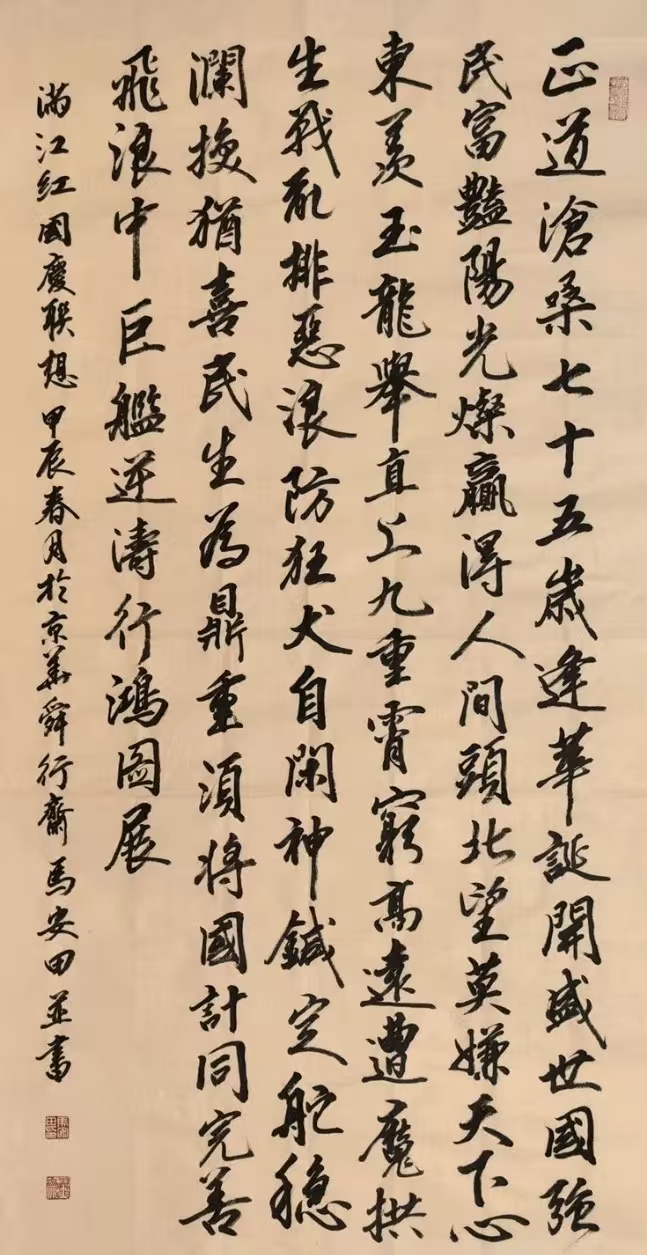 正道滄桑七十五歲逢華誕開盛世國強
民富豔陽光燦贏得人間頭北望莫嫌天下心
東羨玉龍舉直上九重霄窮高遠遭魔拱
生戰亂排惡浪防狂犬自閑神鍼定舵穩
瀾挽猶喜民生為鼎重須將國計同完善
飛浪中巨艦逆濤行鴻圖展
滿江紅國慶聯想甲辰春月於京華舜行齋馬安田並書